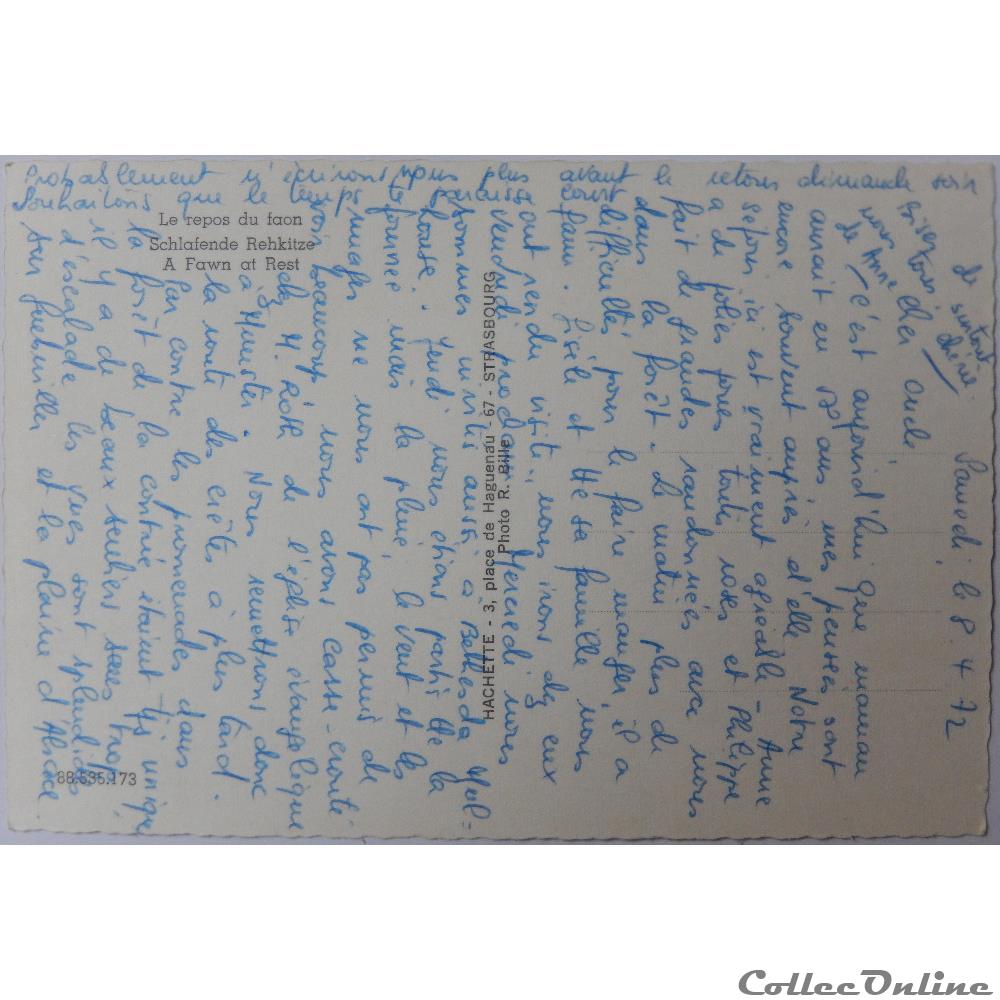 Samedi le 8 4 72
cher oncle
c'est aujourd'hui que maman
aurait eu 78 ans, mes pensées sont
encore souvent auprès d'elle. Notre
séjour ici est vraiment agréable - Anne
a de jolies joues toutes roses et Philippe
fait de grandes randonnées avec nous
dans la forêt. Le matin plus de
difficultés pour le faire manger il a
faim. Gisèle et sa famille nous
ont rendu visite, nous irons chez eux
vendredi prochain. Mercredi nous
sommes invités aussi à Bethesda Mul=
house. Jeudi nous étions partis de la
journée mais la pluie le vent et les
nuages ne nous ont pas permis de
voir beaucoup nous avons casse-crouté
de M. Roth de l'église évangélique
à Munster. Nous remettrons donc
la route des crêtes à plus tard.
Par contre les promenades dans
la forêt de la contrée étaient unique
il y a de beaux sentiers sans trop
d'escalade les vues sont splendides
sur Guebwiller et la plaine d'Alsace
Souhaitons que le temps
Probablement n'écrirons nous plus avant le retour dimanche soir
court
bises
nous
de Anne
de
chérie
Le repos du faon
Schlafende Rehkitze
A Fawn at Rest
HACHETTE - 3, place de Haguenau - 67 - STRASBOURG
Photo R. Bille
88.535.173
CollecOnline